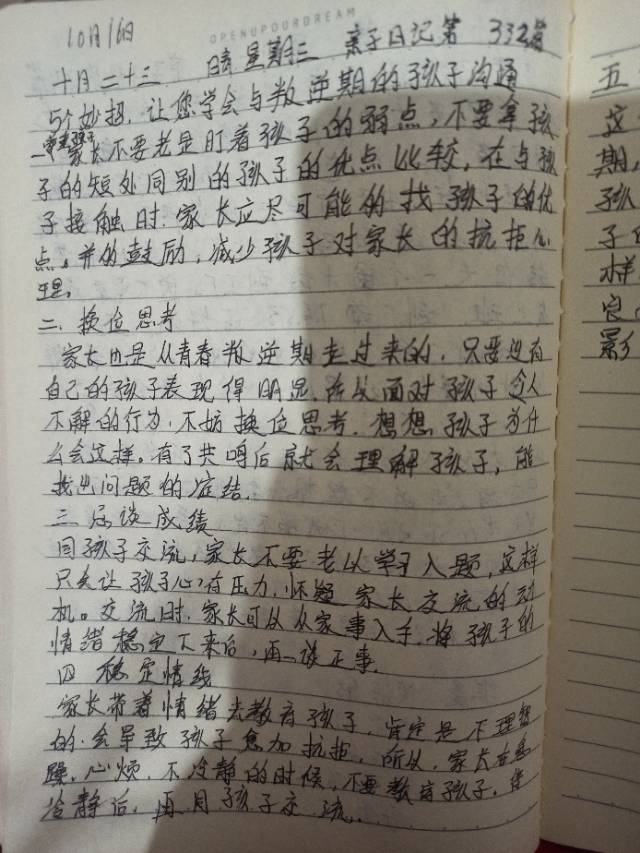 OPENUPOURDREAM
10月16日
十月二十三 晴 星期三 亲子日记第 332篇
5个妙招,让您学会与叛逆期的孩子沟通
一 家长不要老是盯着孩子的弱点,不要拿孩
子的短处同别的孩子的优点比较,在与孩
子接触时.家长应尽可能的找孩子的优
点。并的鼓励,减少孩子对家长的抗拒心
理。
二.换位思考
家长也是从青春叛逆期走过来的.只要没有
自己的孩子表现得明显.所以面对孩子令人
不解的行为,不妨换位思考.想想孩子为什
么会这样。有了共鸣后就会理解孩子,能
找出问题的症结.
三.后谈成绩
同孩子交流,家长不要老以学习入题,这样
只会让孩子心有压力,怀疑家长交流的动
机。交流时.家长可以从家事入手.将孩子的
情绪稳定下来后,再谈正事.
四 稳定情线
家长带着情绪去教育孩子,肯定是不理想
的.会导致孩子愈加抗拒,所以,家长在急
躁.心烦.不冷静的时候,不要教育孩子.
冷静后,再同孩子交流.
五
这
期,
孩
子
样
良
影